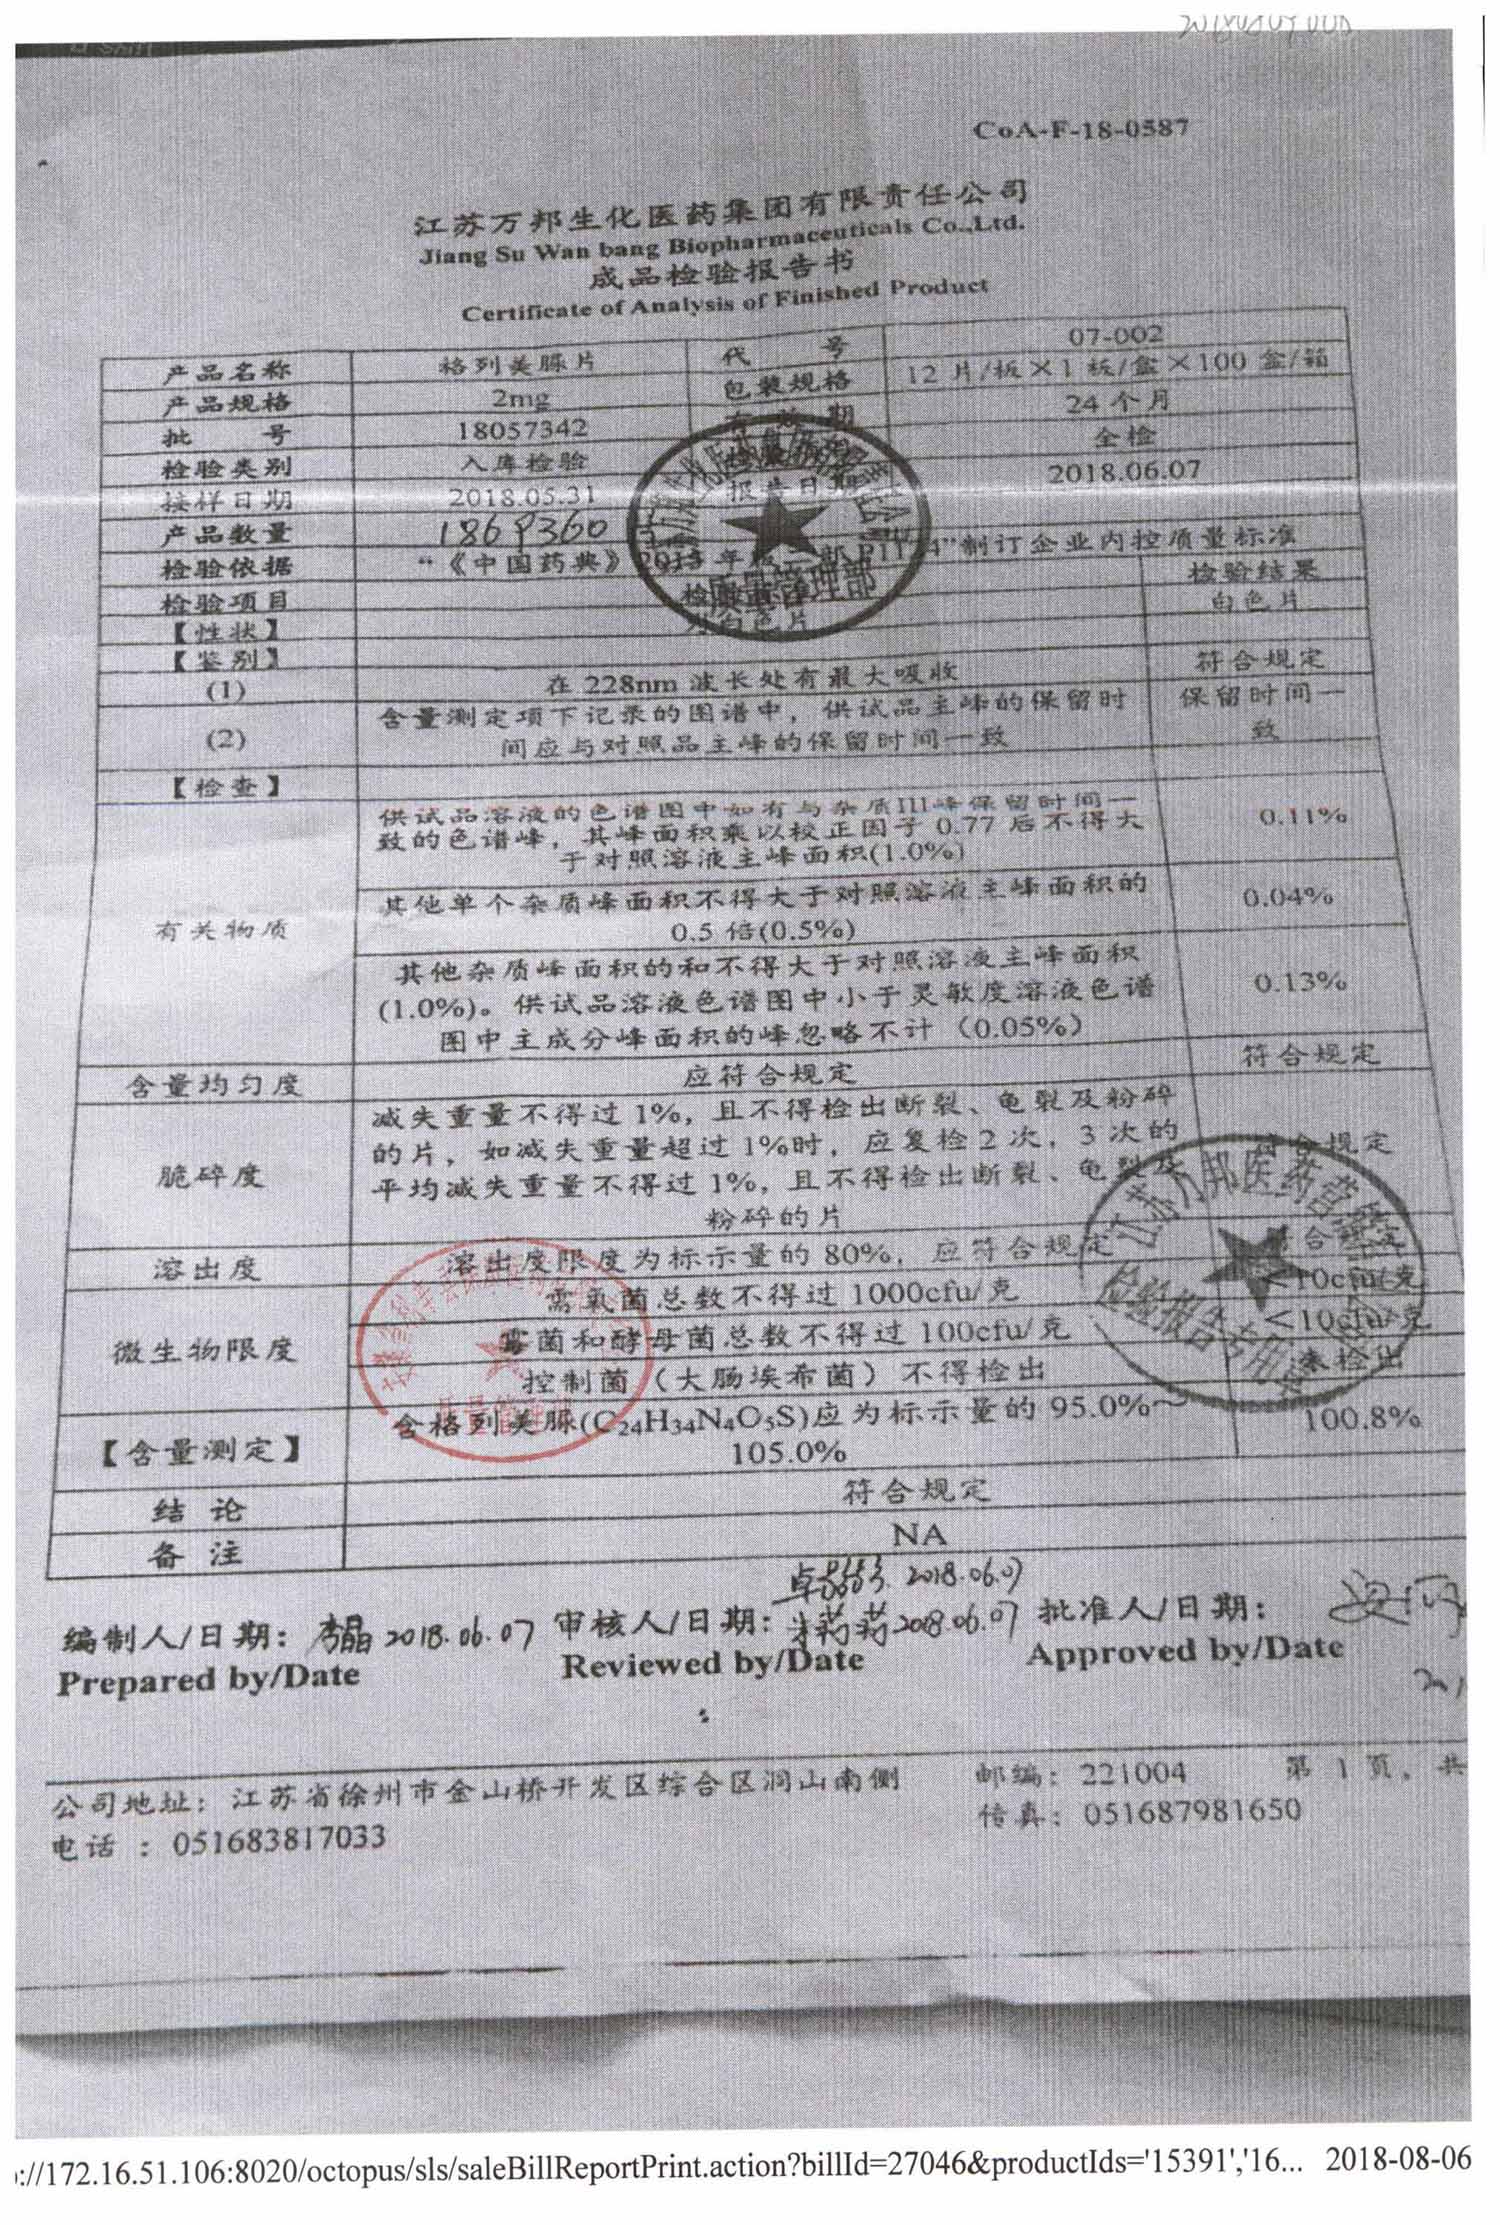 CoA-F-18-0587
江苏万邦生化医药集团有限责任公司
Jiang Su Wan bang Biopharmaceuticals Co.,Ltd.
成品检验报告书
Certificate of Analysis of Finished Product
产品名称 格列美脲片 代 号 07-002
产品规格 2mg 包装规格 12片/板×1板/盒×100盒/箱
批 号 18057342 有效期 24个月
检验类别 入库检验 全检
接样日期 2018.05.31 报告日期 2018.06.07
产品数量 1869360
检验依据 “《中国药典》2015年版二部 ”制订企业内控质量标准
检验项目 检验结果
【性状】 为白色片 白色片
【鉴别】
(1) 在228nm波长处有最大吸收 符合规定
(2) 含量测定项下记录的图谱中，供试品主峰的保留时 保留时间一
间应与对照品主峰的保留时间一致 致
【检查】
有关物质 供试品溶液的色谱图中如有与杂质III峰保留时间一 0.11%
致的色谱峰，其峰面积乘以校正因子0.77后不得大
于对照溶液主峰面积(1.0%)
其他单个杂质峰面积不得大于对照溶液主峰面积的 0.04%
0.5倍(0.5%)
其他杂质峰面积的和不得大于对照溶液主峰面积 0.13%
(1.0%)。供试品溶液色谱图中小于灵敏度溶液色谱
图中主成分峰面积的峰忽略不计（0.05%）
含量均匀度 应符合规定 符合规定
脆碎度 减失重量不得过1%，且不得检出断裂、龟裂及粉碎 符合规定
的片，如减失重量超过1%时，应复检2次，3次的
平均减失重量不得过1%，且不得检出断裂、龟裂及
粉碎的片
溶出度 溶出度限度为标示量的80%，应符合规定 符合规定
微生物限度 需氧菌总数不得过1000cfu/克 <10cfu/克
霉菌和酵母菌总数不得过100cfu/克 <10cfu/克
控制菌（大肠埃希菌）不得检出 未检出
【含量测定】 含格列美脲(C24H34N4O5S)应为标示量的95.0%～ 100.8%
105.0%
结 论 符合规定
备 注 NA
质量管理部
江苏万邦医药营销
检验报告专用章
质量管理
2018.06.07
编制人/日期： 李晶 2018.06.07 审核人/日期： 朱莉莉 2018.06.07 批准人/日期：
Prepared by/Date Reviewed by/Date Approved by/Date
公司地址：江苏省徐州市金山桥开发区综合区洞山南侧 邮编：221004 第 1 页，共
电话 ：051683817033 传真：051687981650
://172.16.51.106:8020/octopus/sls/saleBillReportPrint.action?billId=27046&productIds='15391','16... 2018-08-06